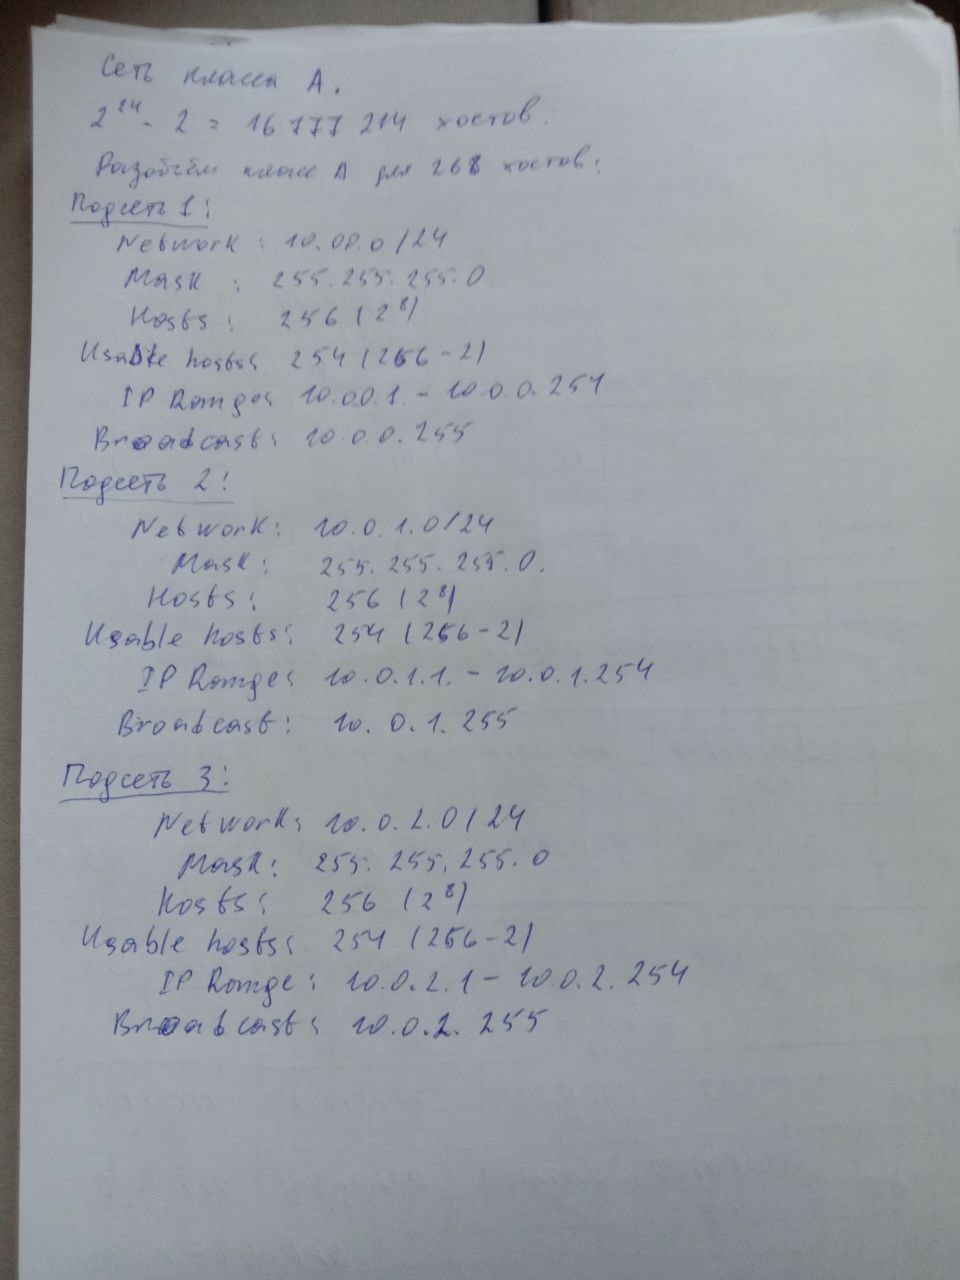 Сеть класса А.
2²⁴ - 2 = 16 777 214 хостов.
Разобьём класс А для 268 хостов:
Подсеть 1:
Network: 10.00.0/24
Mask: 255.255.255.0
Hosts: 256 (2⁸)
Usable hosts: 254 (256-2)
IP Range: 10.0.0.1. - 10.0.0.254
Broadcast: 10.0.0.255
Подсеть 2:
Network: 10.0.1.0/24
Mask: 255.255.255.0.
Hosts: 256 (2⁸)
Usable hosts: 254 (256-2)
IP Range: 10.0.1.1. - 10.0.1.254
Broadcast: 10.0.1.255
Подсеть 3:
Network: 10.0.2.0/24
Mask: 255.255.255.0
Hosts: 256 (2⁸)
Usable hosts: 254 (256-2)
IP Range: 10.0.2.1 - 10.0.2.254
Broadcast: 10.0.2.255